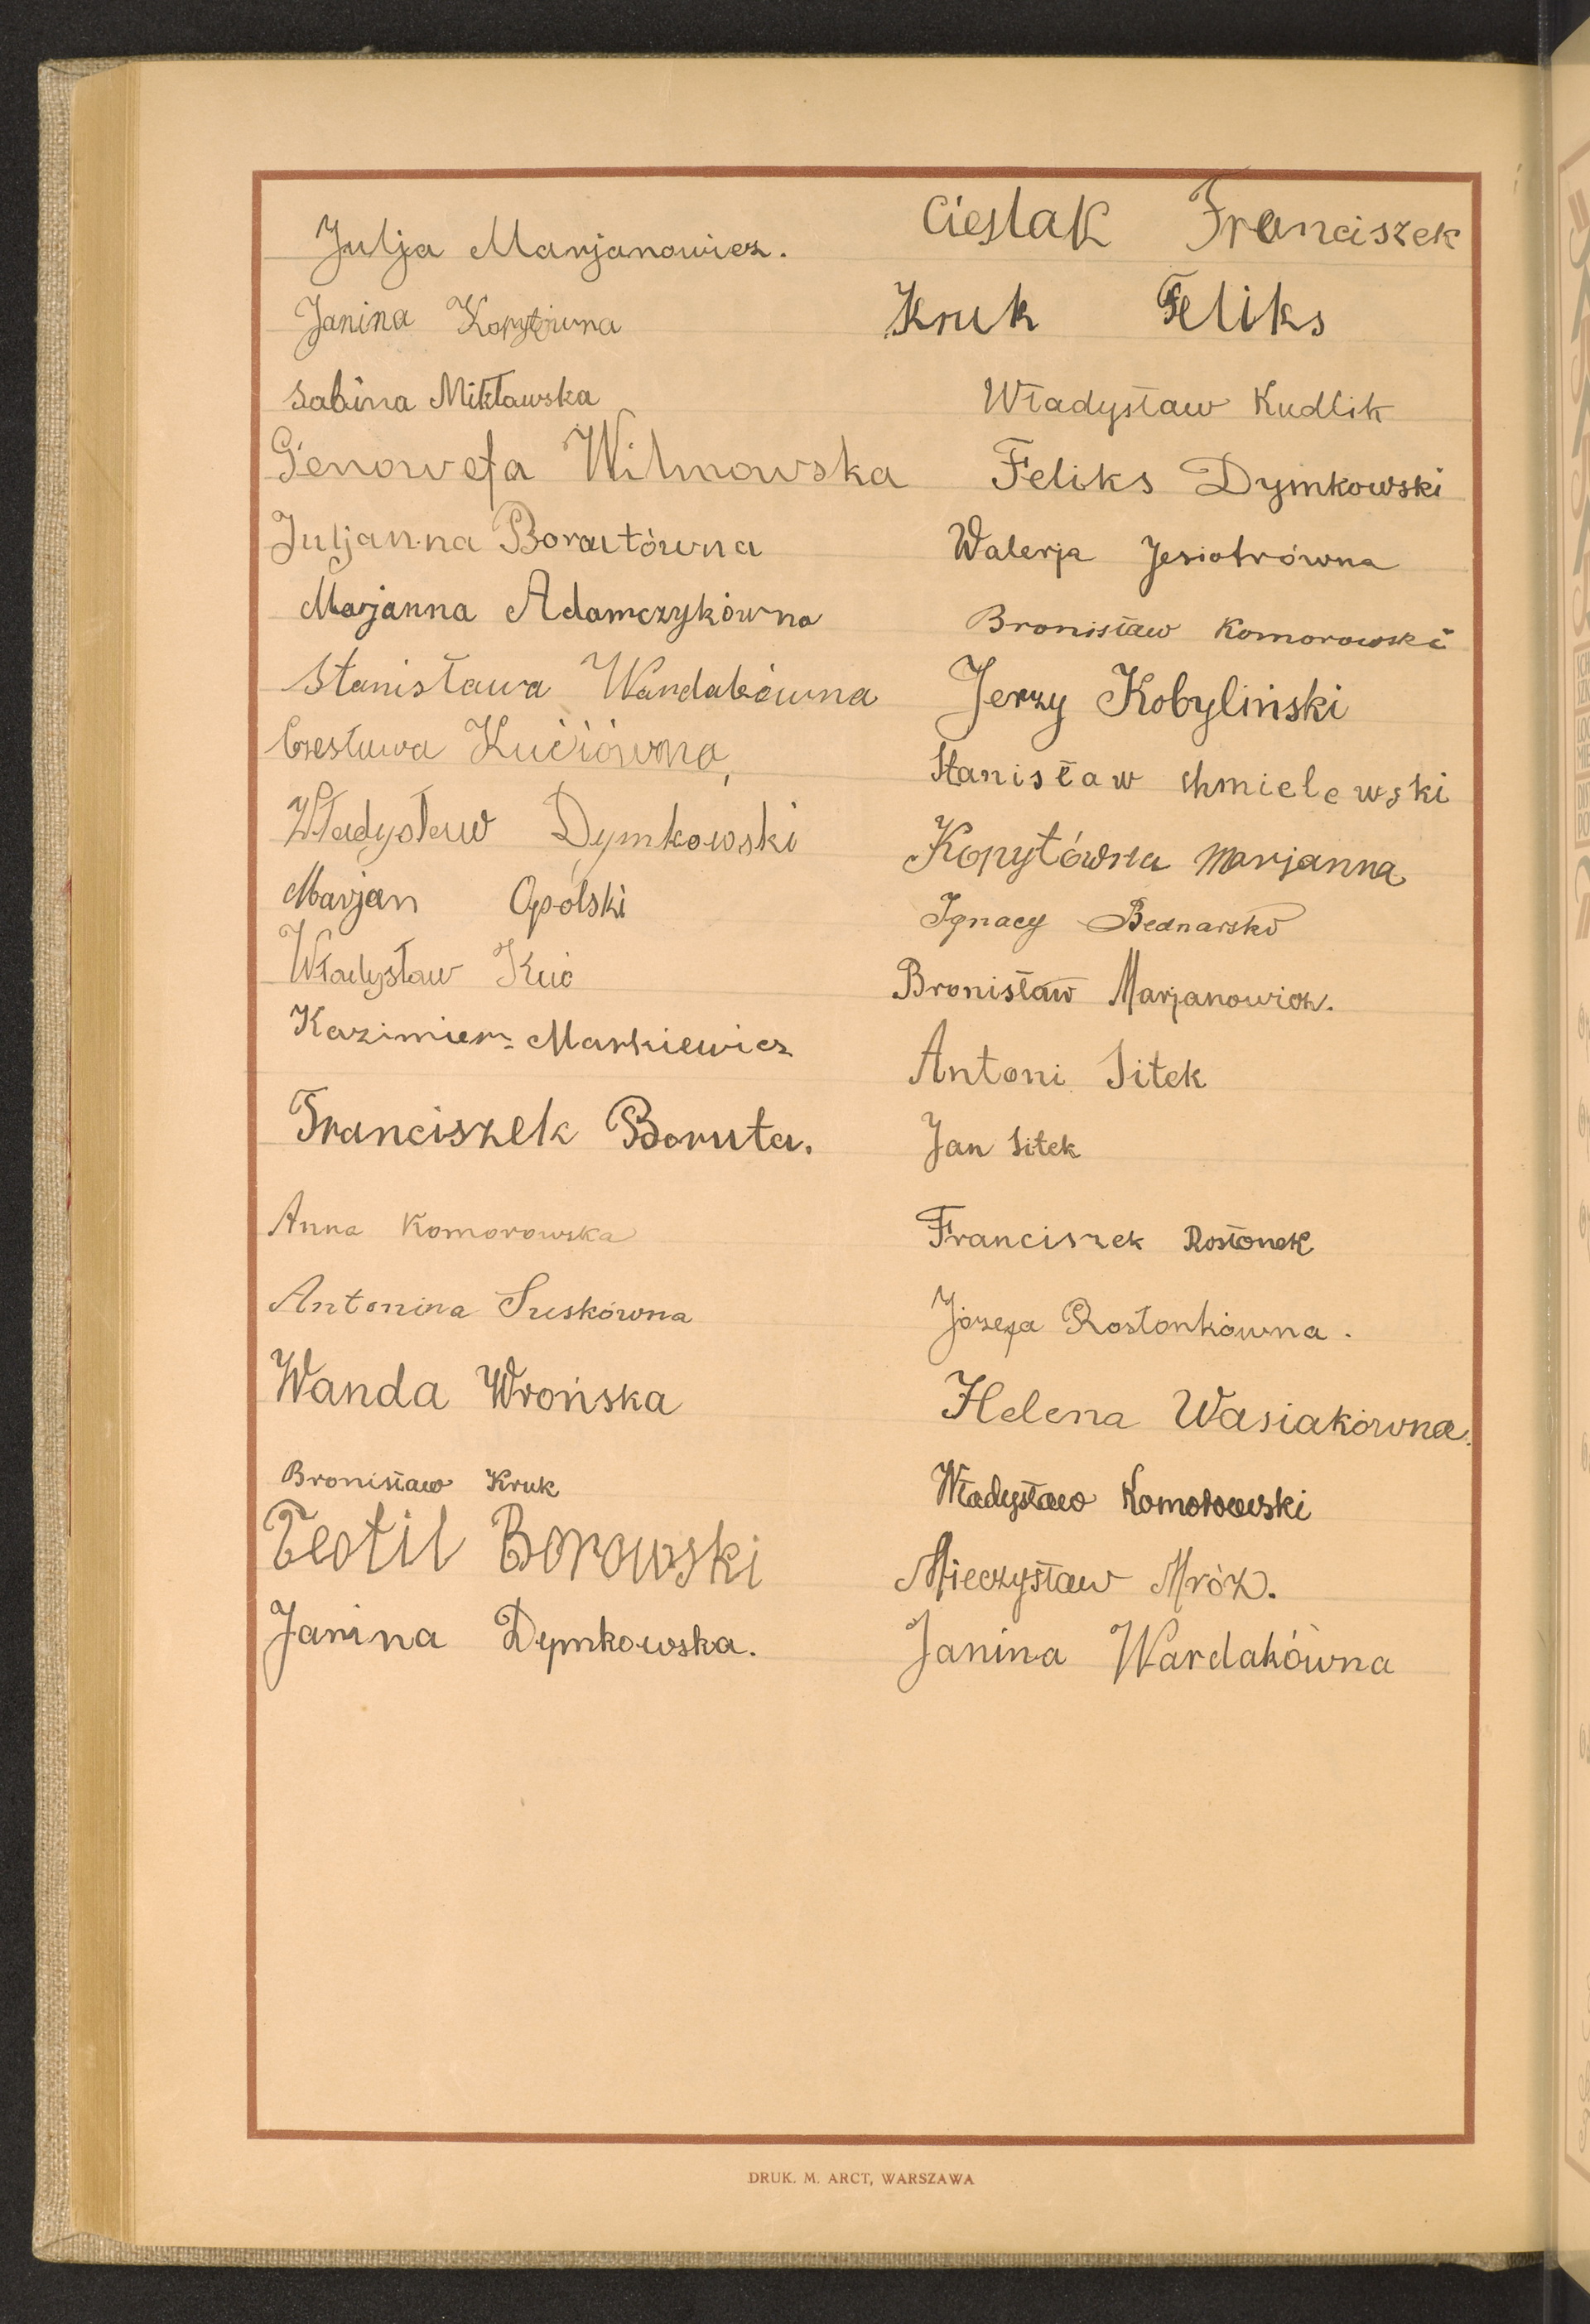 Julja Marjanowicz.
Janina Kopytówna
Sabina Mikławska
Gienowefa Wilmowska
Juljanna Borutówna
Marjanna Adamczykówna
Stanisława Wardakówna
Czesława Kuciówna,
Władysław Dymkowski
Marjan Opolski
Władysław Kuć
Kazimierz Markiewicz
Franciszek Boruta.
Anna Komorowska
Antonina Suskówna
Wanda Wrońska
Bronisław Kruk
Teofil Borowski
Janina Dymkowska.
Cieslak Franciszek
Kruk Feliks
Władysław Kudlik
Feliks Dymkowski
Walerja Jesiotrówna
Bronisław Komorowski
Jerzy Kobyliński
Stanisław Chmielewski
Kopytówna Marjanna
Ignacy Bednarski
Bronisław Marjanowicz.
Antoni Sitek
Jan Sitek
Franciszek Rosłonek
Józefa Rosłonkówna.
Helena Wasiakówna.
Władysław Komorowski
Mieczysław Mróz.
Janina Wardakówna
DRUK. M. ARCT, WARSZAWA